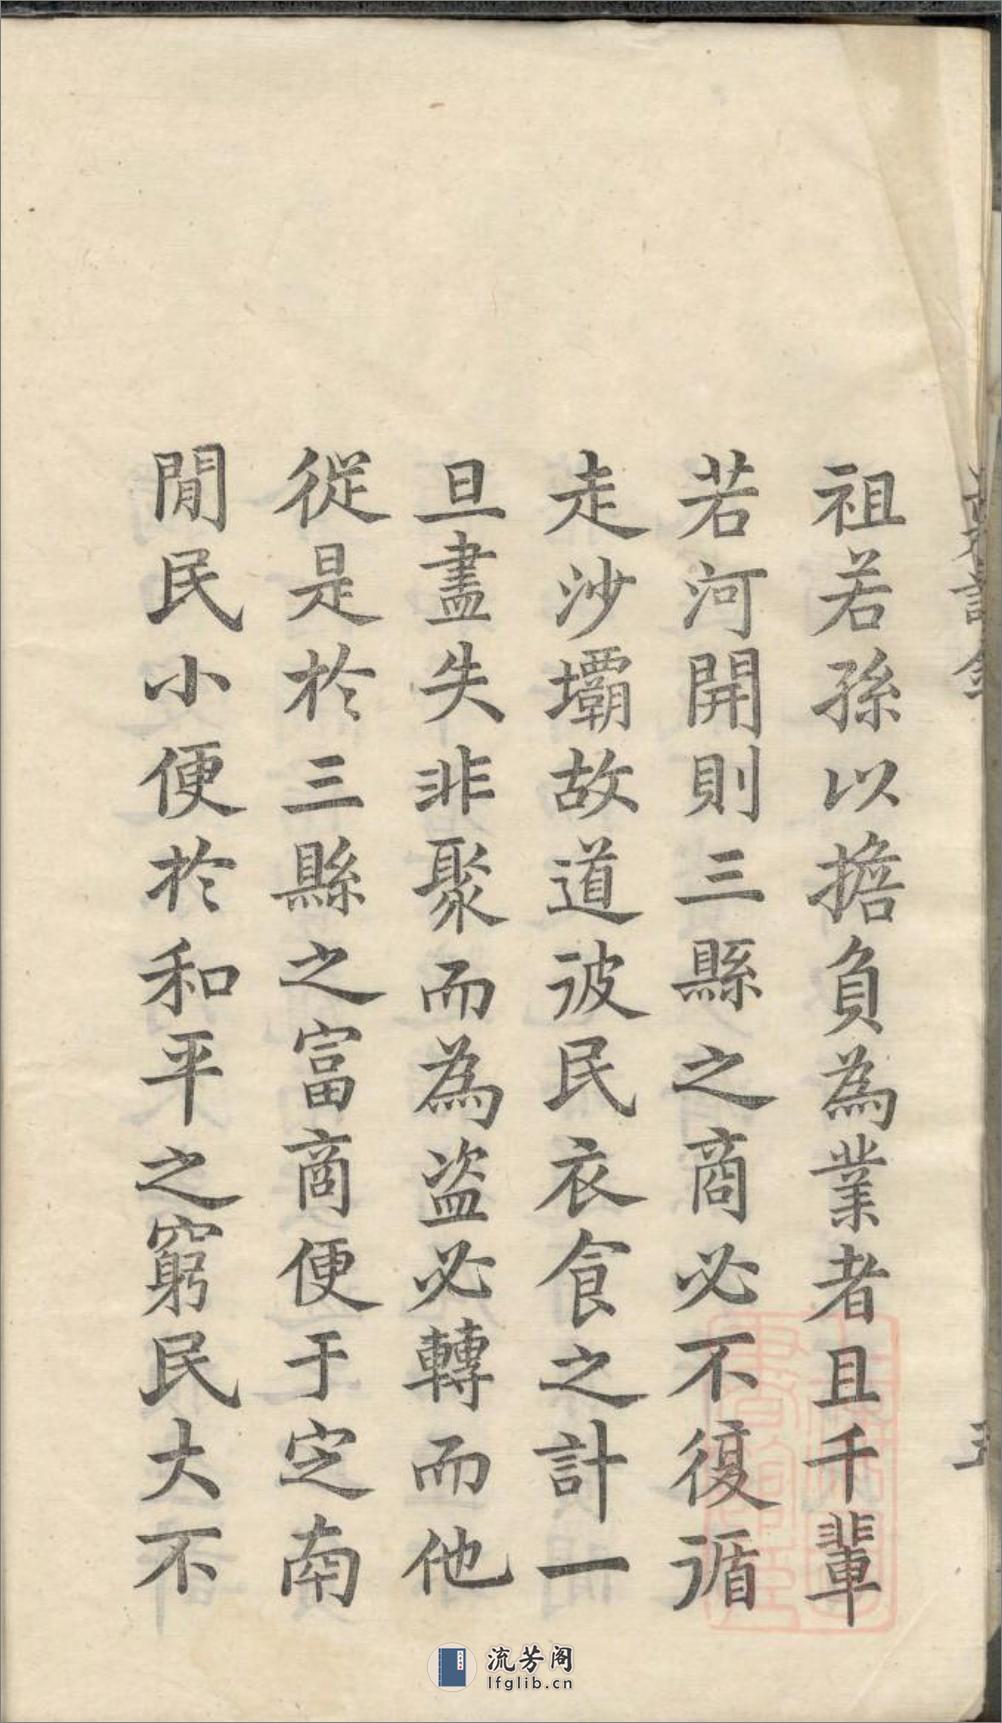 祖若孫以擔負為業者且千輩
若河開則三縣之商必不復循
走沙壩故道彼民衣食之計一
旦盡失非聚而為盜必轉而他
從是於三縣之富商便于定南
閒民小便於和平之窮民大不
流芳阁
lfglib.cn